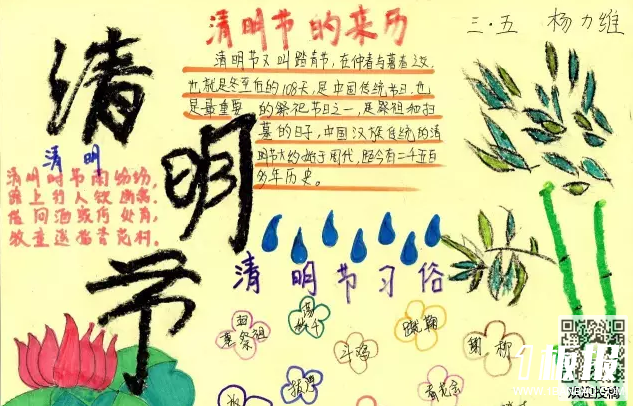 清明节的来历
三·五 杨力维
清明节又叫踏青节,在仲春与暮春之交,
也就是冬至后的108天,是中国传统节日,也
是最重要的祭祀节日之一,是祭祖和扫
墓的日子,中国汉族传统的清
明节大约始于周代,距今有二千五百
多年历史。
清明节
清明
清明时节雨纷纷,
路上行人欲断魂。
借问酒家何处有,
牧童遥指杏花村。
清明节习俗
荡秋千
蹴鞠
斗鸡
拔河